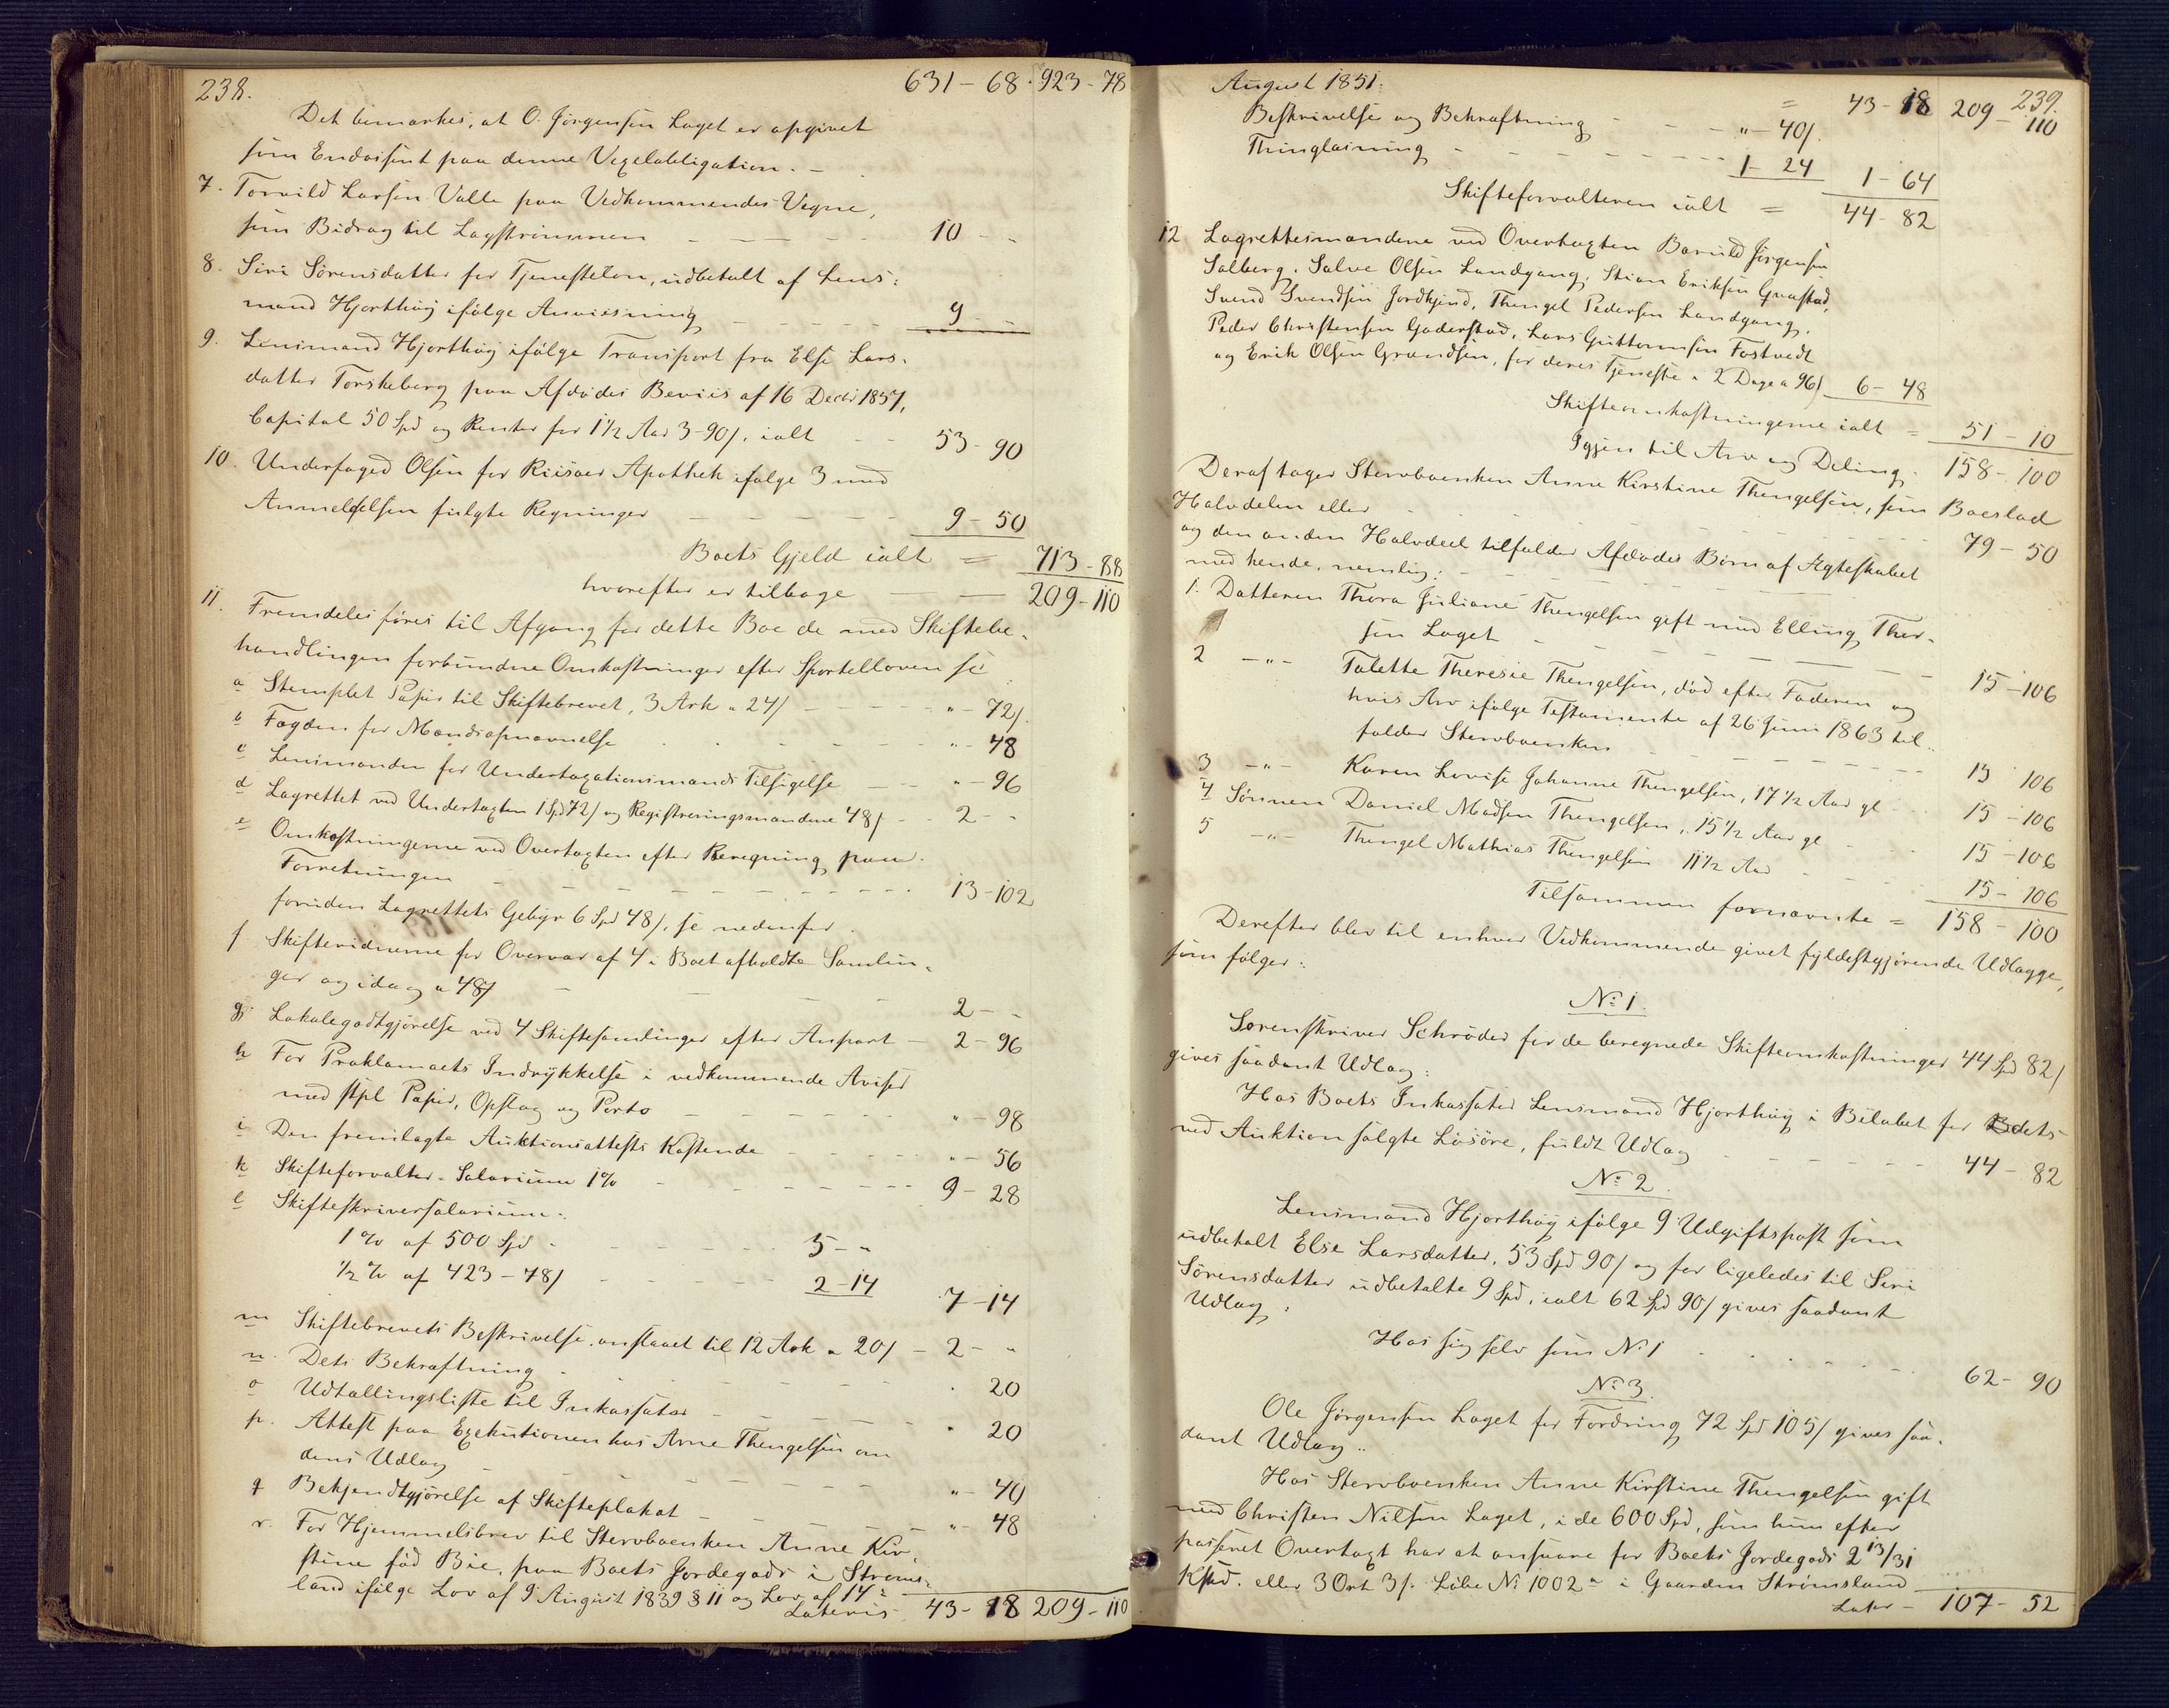 238. 631 – 68. 923 – 78
Det bemærkes, at O. Jørgensen Laget er opgivet
som Endossent paa denne Vexelobligation. –
7. Torvild Larsen Valle paa Vedkommendes Vegne,
sin Bidrag til Lagstrimmen – – – – 10 – -
8. Siri Sørensdatter for Tjenesteløn, udbetalt af Lens:
mand Hjorthøy ifølge Anviisning – – – – 9 –
9. Lensmand Hjorthøy ifølge Transport fra Else Lars-
datter Torskeberg paa Afdødes Beviis af 16 Decbr 1857,
Capital 50 Spd og Renter for 1 1/2 Aar 3-90/, ialt – – 53 – 90
10. Underfoged Olsen for Riisøer Apothek ifølge 3 med
Anmeldelsen fulgte Regninger – – – – 9 – 50
Boets Gjeld ialt = 713 – 88
hvorefter er tilbage – – 209 – 110
11. Fremdeles føres til Afgang for dette Boe de med Skiftebe-
handlingen forbundne Omkostninger efter Sportelloven se:
a Stemplet Papir til Skiftebrevet, 3 Ark a 24/ – – – " – 72/.
b Fogden for Mandsopnævnelse – – – " – 48
c Lensmanden for Undertaxationsmænds Tilsigelse – – " – 96
d Lagrettet ved Undertaxten 1 Spd 72/ og Registreringsmændene 48/ – – 2 – -
e Omkostningerne ved Overtaxten efter Beregning paa
Forretningen – – – – 13 – 102
foruden Lagrettets Gebyr 6 Spd 48/, se nedenfor.
f Skiftevidnerne for Overvær af 4 i Boet afholdte Samlin-
ger og idag a 48/ – – – 2 – -
g. Lokalegodtgjørelse ved 4 Skiftesamlinger efter Anpart – 2 – 96
h For Proklamaets Indrykkelse i vedkommende Aviser
med stpl Papir, Opslag og Porto – – – " – 98
i Den fremlagte Auktionsattests Kostende – – – " – 56
k Skifteforvalter-Salarium 1 % – – – 9 – 28
l Skifteskriversalarium:
1 % af 500 Spd – – – 5 – "
1/2 % af 423 – 78/ – – – 2 – 14 7 – 14
m Skiftebrevets Beskrivelse, anslaaet til 12 Ark a 20/ – 2 – "
n. Dets Bekræftning – – – . 20
o Udtællingsliste til Inkassator – – – " 20
p. Attest paa Exekutionen hos Arne Thengelsen om
dens Udlæg – – – " – 40
q Bekjendtgjørelse af Skifteplakat – – – " – 48
r. For Hjemmelsbrev til Stervboenken Anne Kir-
stine fød Bie, paa Boets Jordegods i Strøms-
land ifølge Lov af 9 August 1839 § 11 og Lov af 14:
Lateris – 43 – 18 209 – 110
August 1851: = 43 – 18 209 – 110 239.
Beskrivelse og Bekræftning – – – " – 40/.
Thinglæsning – – – 1 – 24 1 – 64
Skifteforvalteren ialt = 44 – 82
12 Lagrettesmændene ved Overtaxten Baruld Jørgensen
Salberg, Salve Olsen Landgang, Stian Eriksen Gnastad,
Svend Svendsen Jordkjend, Thengel Pedersen Landgang,
Peder Christensen Goderstad, Lars Guttormsen Fostvedt
og Erik Olsen Grandsen, for deres Tjeneste a 2 Dage a 96/ 6 – 48
Skifteomkostningerne ialt = 51 – 10
Igjen til Arv og Deling. 158 – 100
Deraf tager Stervboenken Anne Kirstine Thengelsen, sin Boeslod
Halvdelen eller – – – 79 – 50
og den anden Halvdeel tilfalder Afdødes Børn af Ægteskabet
med hende, nemlig: – – –
1. Datteren Thora Juliane Thengelsen gift med Elling Ther-
sen Laget – – – 15 – 106
2 – " – Talette Theresie Thengelsen, død efter Faderen og
hvis Arv ifølge Testamente af 26 Juni 1863 til-
falder Stervboenken – – – 15 106
3 – " – Karen Lovise Johanne Thengelsen, 17 1/2 Aar gl – 15 – 106
4 Sønnen Daniel Madsen Thengelsen, 15 1/2 Aar gl – 15 – 106
5 – " – Thengel Mathias Thengelsen 11 1/2 Aar – – 15 – 106
Tilsammen fornævnte = 158 – 100
Derefter blev til enhver Vedkommende givet fyldestgjørende Udlægge,
som følger:
No 1.
Sorenskriver Schrøder for de beregnede Skifteomkostninger 44 Spd 82/
gives saadant Udlæg:
Hos Boets Inkassator Lensmand Hjorthøy i Beløbet for Boets
ved Auktion solgte Løsøre, fuldt Udlæg – – – 44 – 82
No 2.
Lensmand Hjorthøy ifølge 9 Udgiftspost som
udbetalt Else Larsdatter, 53 Spd 90/ og for ligeledes til Siri
Sørensdatter udbetalte 9 Spd, ialt 62 Spd 90/ gives saadant
Udlæg:
Hos sig selv som No 1 – – – 62 – 90
No 3.
Ole Jørgensen Laget for Fordring 72 Spd 105/ gives saa-
dant Udlæg:
Hos Stervboenken Anne Kirstine Thengelsen gift
med Christen Nilsen Laget, i de 600 Spd, som hun efter
passeret Overtaxt har at ansvare for Boets Jordegods 2 13/31
Khud. eller 3 Ort 3/. Løbe No 1002 a i Gaarden Strømsland
Later – 107 – 52